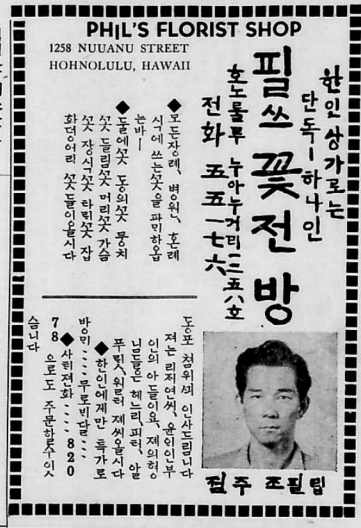 PHIL'S FLORIST SHOP
1258 NUUANU STREET
HOHNOLULU, HAWAII
한인상가로는
단독一하나인
필쓰 꽃전방
호노룰루 누아누거리 一二五八호
전화 五五一七六
◆모든장례, 병원, 혼례
식에 쓰는꽃을 파미하옵
는바一
◆둘에꽃 동의꽃 뭉치
꽃 들림꽃 머리꽃 가슴
꽃 장식꽃 타릭꽃 잡
화 꽃들이올시다
동포 첨위씌 인사드림니다
저는 리저연씨, 부
인의 아들이요, 제의형
님들은 헤느리, 피터, 알
푸린, 워르터 제씨올시다
◆한인에게만 특가로
◆사뢰젼화::::820
78 으로도 주문할수잇
슴니다
점주 조필립